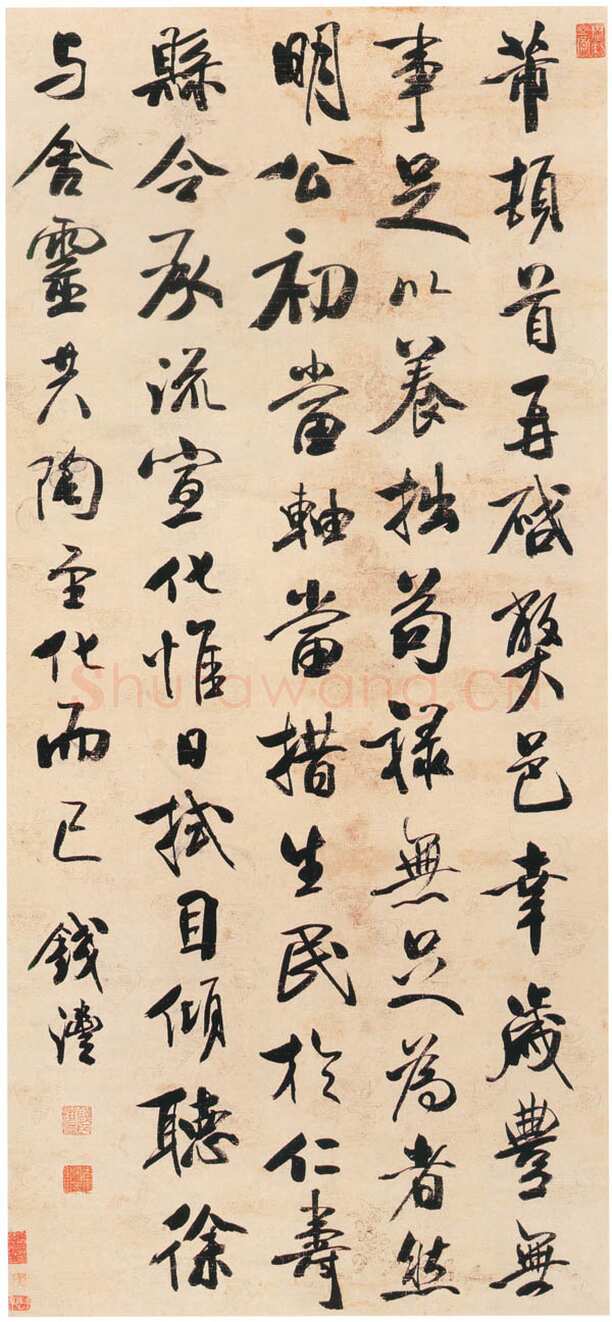 芾頓首再啟弊邑幸歲豐無
事足以養拙苟祿無足為者然
明公初當軸當措生民於仁壽
縣令承流宣化惟日拭目傾聽徐
与含靈共陶至化而已 錢灃
Shufawang.CN